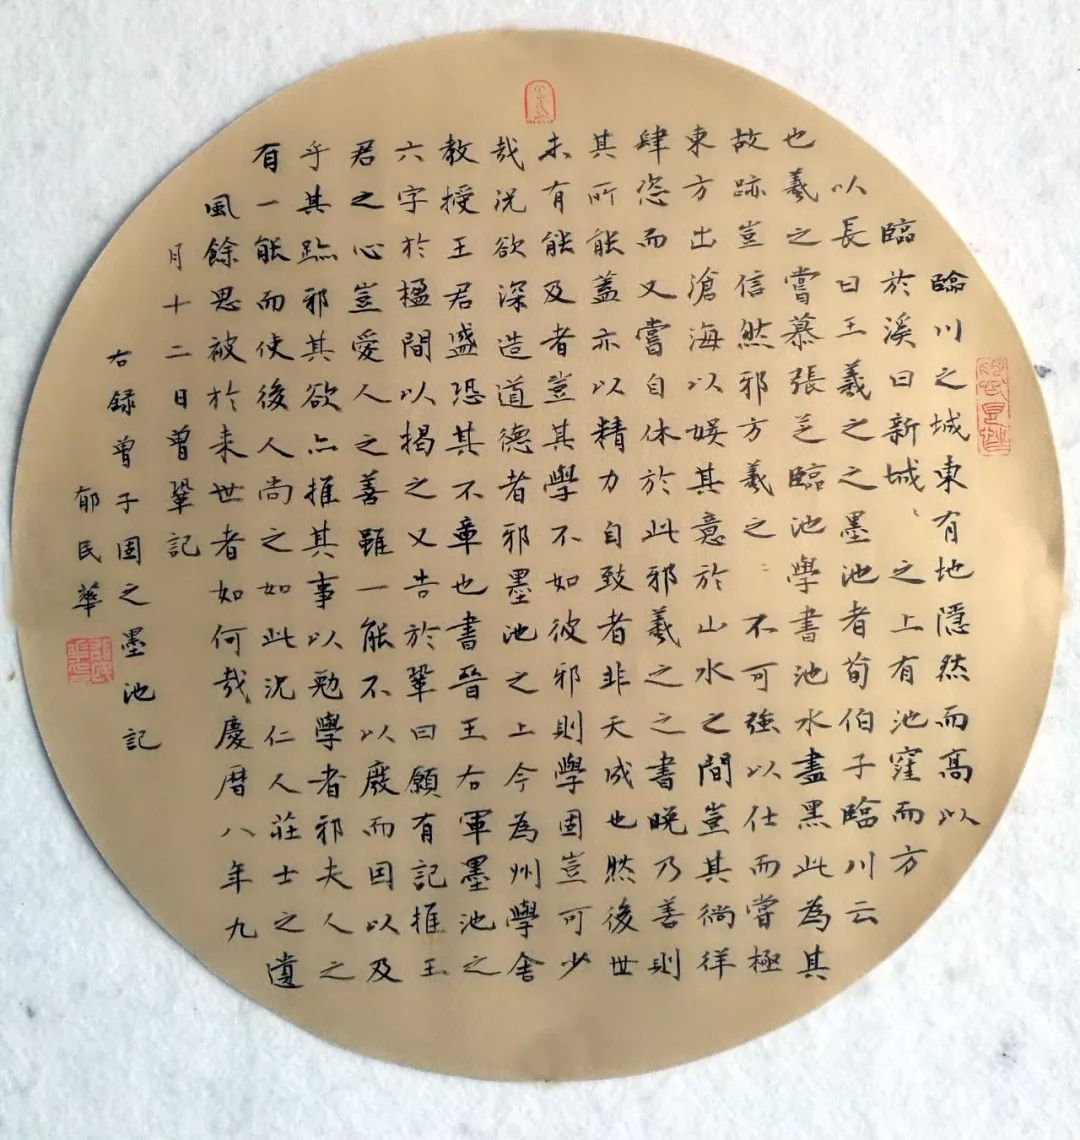 臨川之城東有地隱然而高以
臨於溪曰新城、之上有池窪而方
以長曰王羲之之墨池者荀伯子臨川云
也羲之嘗慕張芝臨池學書池水盡黑此為其
故跡豈信然邪方羲之：不可強以仕而嘗極
東方出滄海以娱其意於山水之間豈其徜徉
肆恣而又嘗自休於此邪羲之之書晚乃善則
其所能蓋亦以精力自致者非天成也然後世
未有能及者豈其學不如彼邪則學固豈可少
哉況欲深造道德者邪墨池之上今為州學舍
教授王君盛恐其不章也書晉王右軍墨池之
六字於楹間以揭之又告於鞏曰願有記推王
君之心豈愛人之善雖一能不以廢而因以及
乎其跡邪其欲亦推其事以勉學者邪夫人之
有一能而使後人尚之如此況仁人莊士之遺
風餘思被於来世者如何哉慶曆八年九
月十二日曾鞏記
右録曾子固之墨池記
郁民華